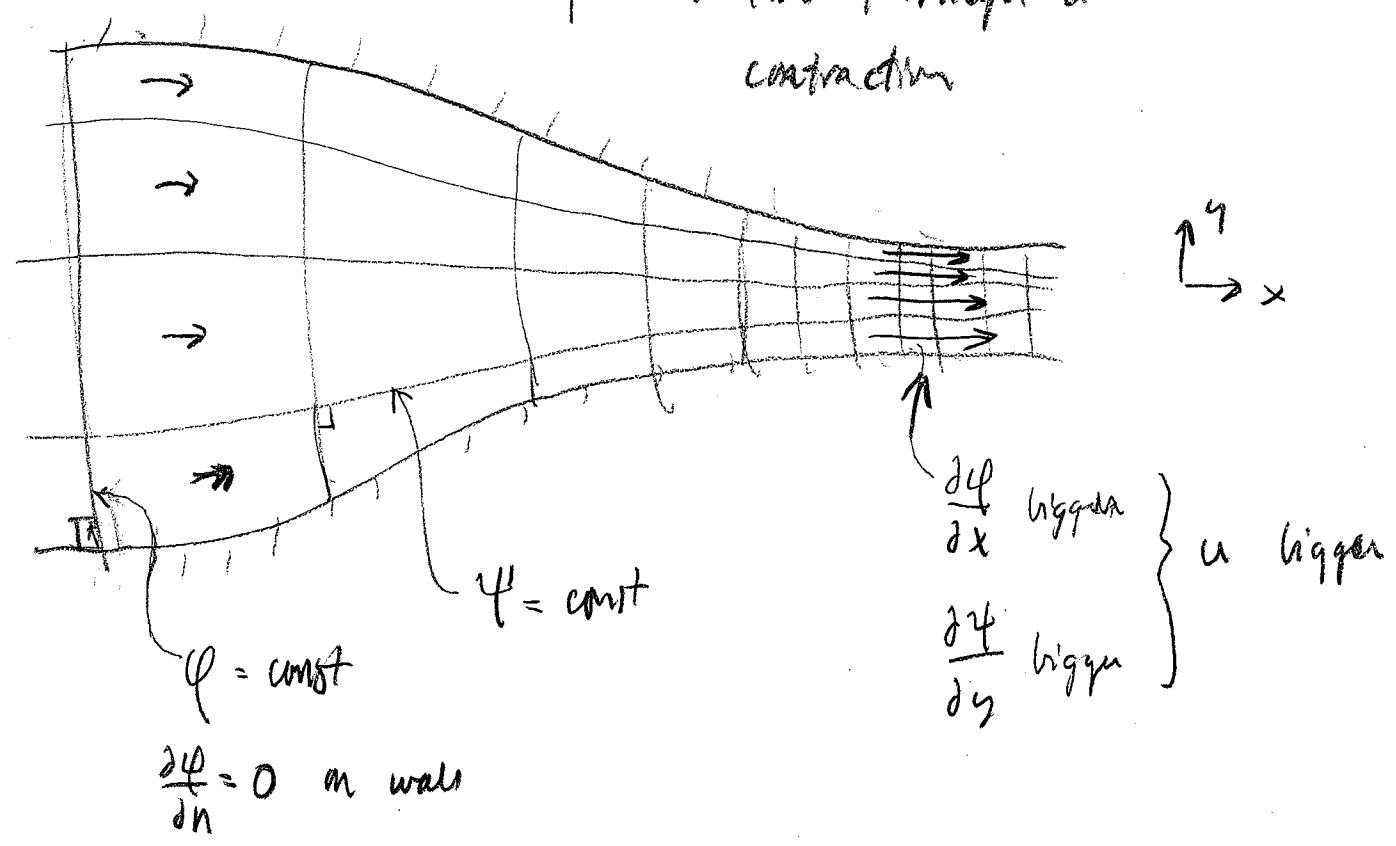 contraction
y
x
∂φ/∂x bigger
∂ψ/∂y bigger
u bigger
ψ = const
φ = const
∂φ/∂n = 0 on walls